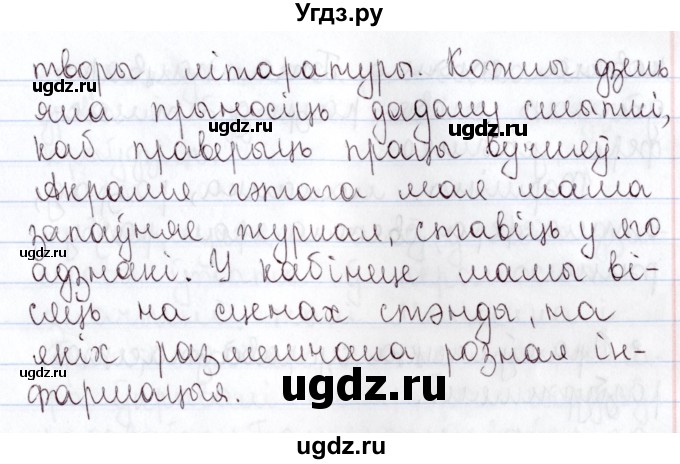 Угдз.ру
творы літаратуры. Кожны дзень
яна прыносіць дадому сшыткі,
ugdz.ru
ugdz.ru
каб праверыць працы вучняў.
Акрамя гэтага мая мама
запаўняе журнал, ставіць у яго
адзнакі. У кабінеце мамы ві-
сяць на сценах стэнды, на
якіх размешчана розная ін-
фармацыя.
ugdz.ru
ugdz.ru
ugdz.ru